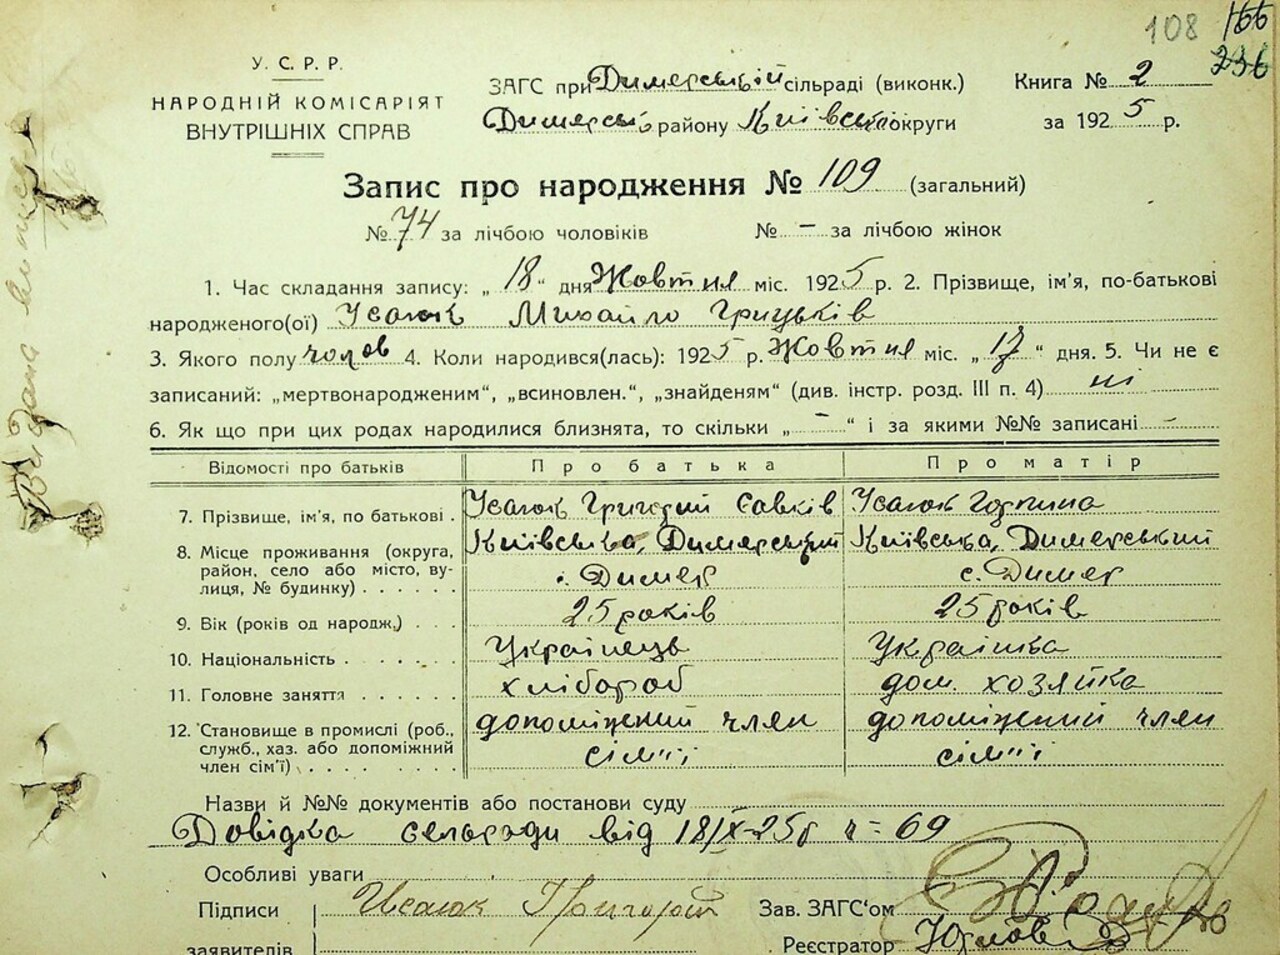 108 166
236
У. С. Р. Р.
НАРОДНІЙ КОМІСАРІЯТ
ВНУТРІШНІХ СПРАВ
ЗАГС при Димерській сільраді (виконк.)
Димерськ. району Київськ. округи
Книга № 2
за 1925 р.
Запис про народження № 109 (загальний)
№ 74 за лічбою чоловіків № – за лічбою жінок
1. Час складання запису: „ 18 “ дня Жовтня міс. 1925 р. 2. Прізвище, ім'я, по-батькові
народженого(ої) Усаюк Михайло Грицьків
3. Якого полу чолов 4. Коли народився(лась): 1925 р. Жовтня міс. „ 17 “ дня. 5. Чи не є
записаний: „мертвонародженим“, „всиновлен.“, „знайденям“ (див. інстр. розд. III п. 4) ні
6. Як що при цих родах народилися близнята, то скільки „ – “ і за якими №№ записані –
Відомості про батьків Про батька Про матір
7. Прізвище, ім'я, по батькові . Усаюк Григорій Савків Усаюк Горпина
8. Місце проживання (округа, район, село або місто, вулиця, № будинку) . . . . . . Київська, Димерський Київська, Димерський
с. Димер с. Димер
9. Вік (років од народж.) . . . 25 років 25 років
10. Національність . . . . . . Українець Українка
11. Головне заняття . . . . . . хлібороб дом. хозяйка
12. Становище в промислі (роб., служб., хаз. або допоміжний член сім'ї) . . . . . . . допоміжний член допоміжний член
сім'ії сім'ії
Назви й №№ документів або постанови суду
Довідка сельради від 18/IX-25р ч= 69
Особливі уваги
Підписи Исаюк Григорій Зав. ЗАГС'ом
заявителів Реєстратор
Видана